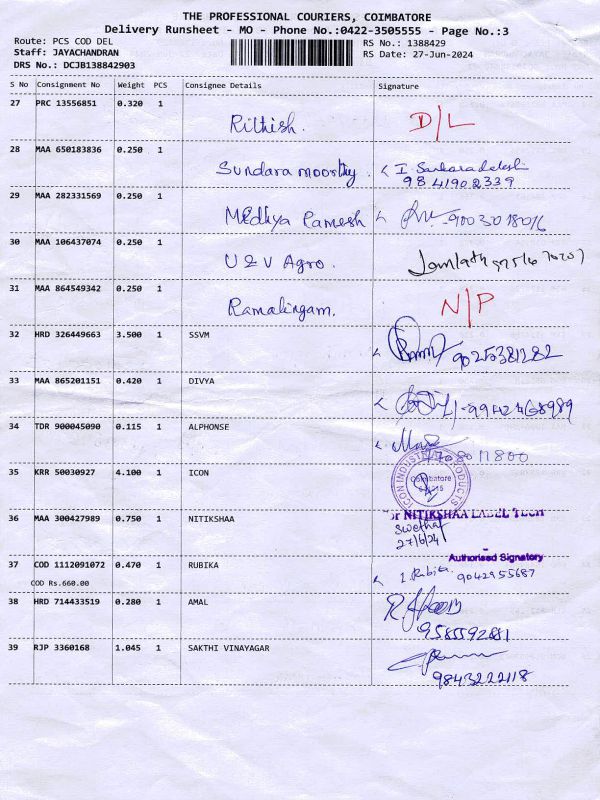 THE PROFESSIONAL COURIERS, COIMBATORE
Delivery Runsheet - MO - Phone No.:0422-3505555 - Page No.:3
Route: PCS COD DEL RS No.: 1388429
Staff: JAYACHANDRAN RS Date: 27-Jun-2024
DRS No.: DCJB138842903
S No Consignment No Weight PCS Consignee Details Signature
27 PRC 13556851 0.320 1 Rithish. D/L
28 MAA 650183836 0.250 1 Sundara moorthy
9841902339
29 MAA 282331569 0.250 1 Ramesh 9003018016
30 MAA 106437074 0.250 1 U & V Agro.
31 MAA 864549342 0.250 1 Ramalingam. N/P
32 HRD 326449663 3.500 1 SSVM
9025381282
33 MAA 865201151 0.420 1 DIVYA
34 TDR 900045090 0.115 1 ALPHONSE
35 KRR 50030927 4.100 1 ICON ICON INDUSTRIAL PRODUCTS
Coimbatore
36 MAA 300427989 0.750 1 NITIKSHAA NITIKSHAA LABEL TECH
27/6/24
Authorised Signatory
37 COD 1112091072 0.470 1 RUBIKA I. Rubika 9042955687
COD Rs.660.00
38 HRD 714433519 0.280 1 AMAL
9585592881
39 RJP 3360168 1.045 1 SAKTHI VINAYAGAR
9843222118